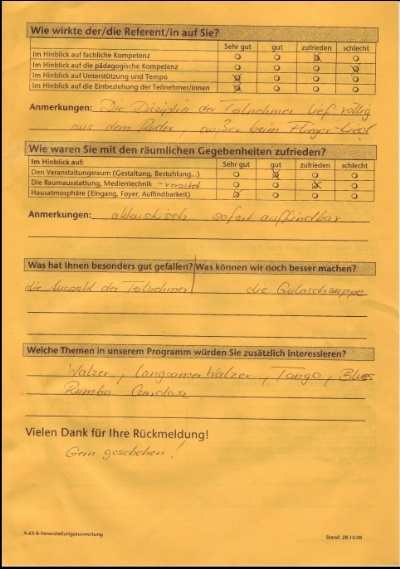 Wie wirkte der/die Referent/in auf Sie?
Sehr gut gut zufrieden schlecht
Im Hinblick auf fachliche Kompetenz
Im Hinblick auf die pädagogische Kompetenz
Im Hinblick auf Unterstützung und Tempo
Im Hinblick auf die Einbeziehung der Teilnehmer/innen
Anmerkungen: Die Disziplin der Teilnehmer lief völlig
aus dem Ruder, außer beim Flieger-Lied!
Wie waren Sie mit den räumlichen Gegebenheiten zufrieden?
Im Hinblick auf: Sehr gut gut zufrieden schlecht
Den Veranstaltungsraum (Gestaltung, Bestuhlung...)
Die Raumausstattung, Medientechnik - veraltet
Hausatmosphäre (Eingang, Foyer, Auffindbarkeit)
Anmerkungen: sofort auffindbar
Was hat Ihnen besonders gut gefallen? Was können wir noch besser machen?
die Auswahl der Teilnehmer die Gulaschsuppe
Welche Themen in unserem Programm würden Sie zusätzlich interessieren?
Walzer, langsamer Walzer, Tango, Blues
Rumba
Vielen Dank für Ihre Rückmeldung!
Gern geschehen!
A-63-B-Veranstaltungsauswertung Stand: 28.10.08